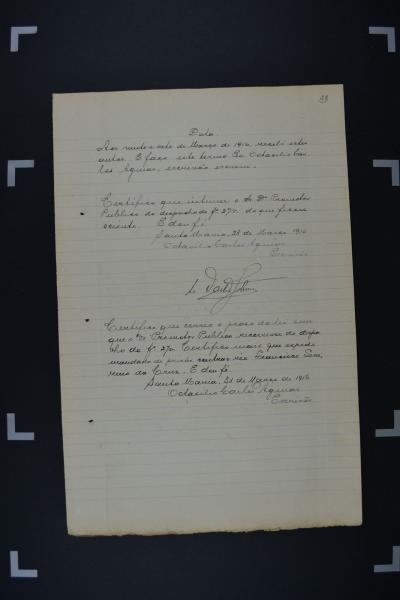 Data.
Aos vinte e sete de Março de 1916, recebi estes
autos. E faço este termo Eu Octacilio Car
los Aguiar, escrivão escrevi.
Certifico que intimei o Sr. Dr. Promotor
Publico do despacho de fs 27v. do que ficou
sciente. E dou fé.
Santa Maria, 28 de Março 1916
Octacilio Carlos Aguiar
Escrivão
Certifico que correu o praso da lei sem
que o Dr Promotor Publico recorresse do despa
cho de fs 27v. Certifico mais que expedi
mandado de prisão contra o réo Francisco
da Cruz. E dou fé.
Santa Maria, 31 de Março de 1916
Octacilio Carlos Aguiar
Escrivão